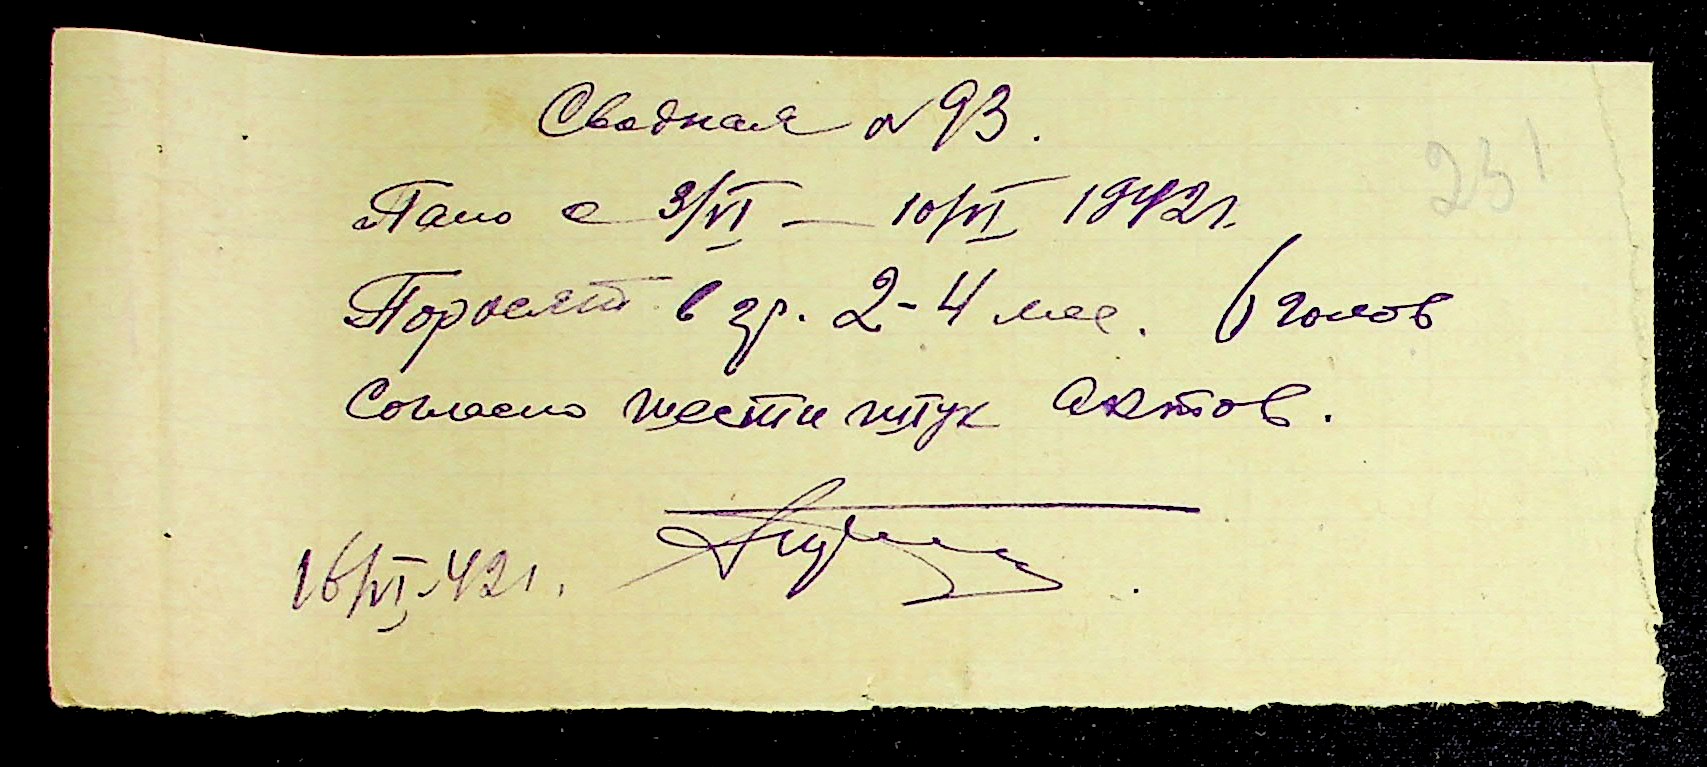 Сводная № 93.
251
Пало с 3/VI — 10/VI 1942г.
Поросят в гр. 2-4 мес. 6 голов
Согласно шести штук актов.
16/VI-42г.